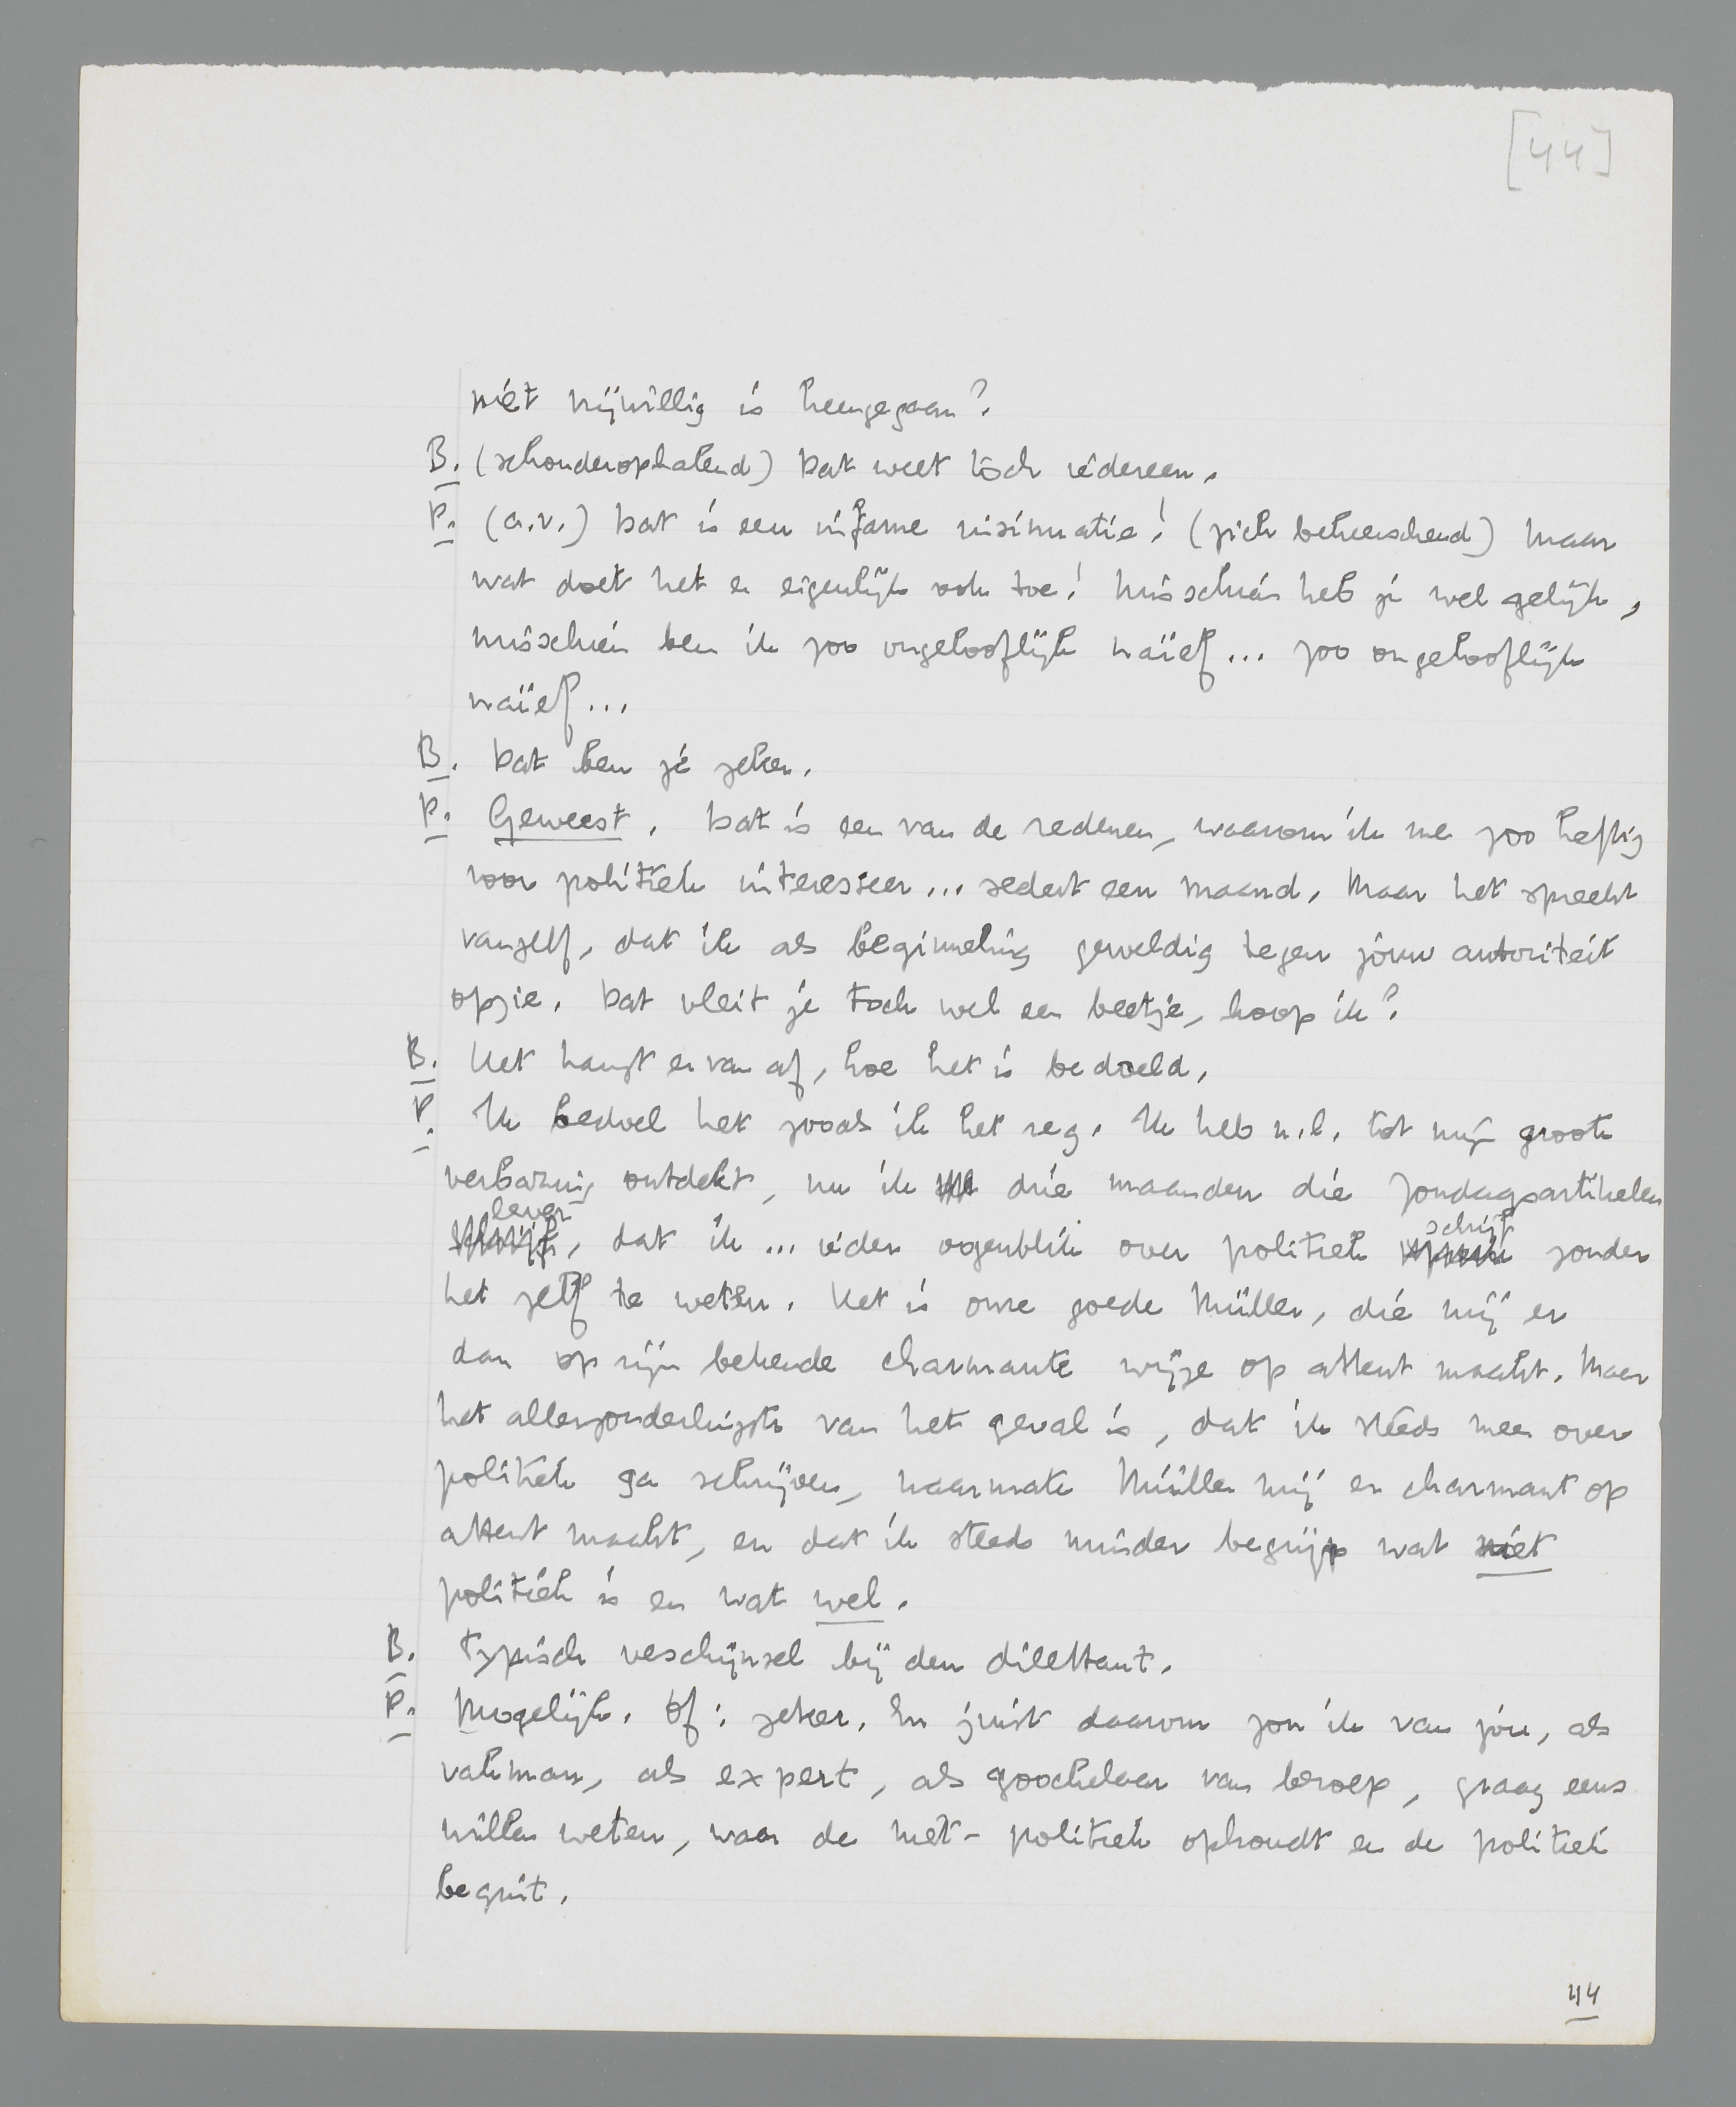 [44]
niet vrijwillig is heengegaan?
B. (schouderophalend) Dat weet tòch iedereen.
P. (a.v.) Dat is een infame insinuatie! (zich beheerschend) Maar
wat doet het er eigenlijk ook toe! Misschien heb je wel gelijk,
misschien ben ik zoo ongelooflijk naïef... zoo ongelooflijk
naïef...
B. Dat ben je zeker.
P. Geweest. Dat is een van de redenen, waarom ik me zoo heftig
voor politiek interesseer... sedert een maand. Maar het spreekt
vanzelf, dat ik als beginneling geweldig tegen jouw autoriteit
opzie. Dat vleit je toch wel een beetje, hoop ik?
B. Het hangt er van af, hoe het is bedoeld.
P. Ik bedoel het zooals ik het zeg. Ik heb n.l. tot mijn groote
verbazing ontdekt, nu ik drie maanden die Zondagsartikelen
lever, dat ik... ieder oogenblik over politiek schrijf zonder
het zelf te weten. Het is onze goede Müller, die mij er
dan op zijn bekende charmante wijze op attent maakt. Maar
het allerzonderlingste van het geval is, dat ik steeds meer over
politiek ga schrijven, naarmate Müller mij er charmant op
attent maakt, en dat ik steeds minder begrijp wat niet
politiek is en wat wel.
B. Typisch verschijnsel bij den dilettant.
P. Mogelijk. Of: zeker. En juist daarom zou ik van jou, als
vakman, als expert, als goochelaar van beroep, graag eens
willen weten, waar de niet-politiek ophoudt en de politiek
begint.
44